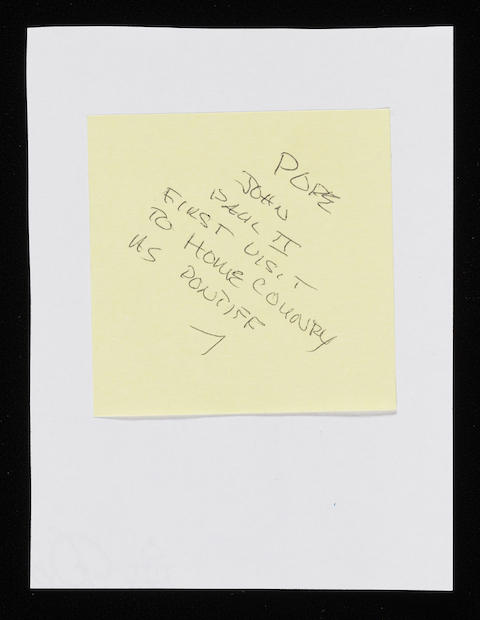 POPE
JOHN
PAUL II
FIRST VISIT
TO HOME COUNTRY
AS PONTIFF